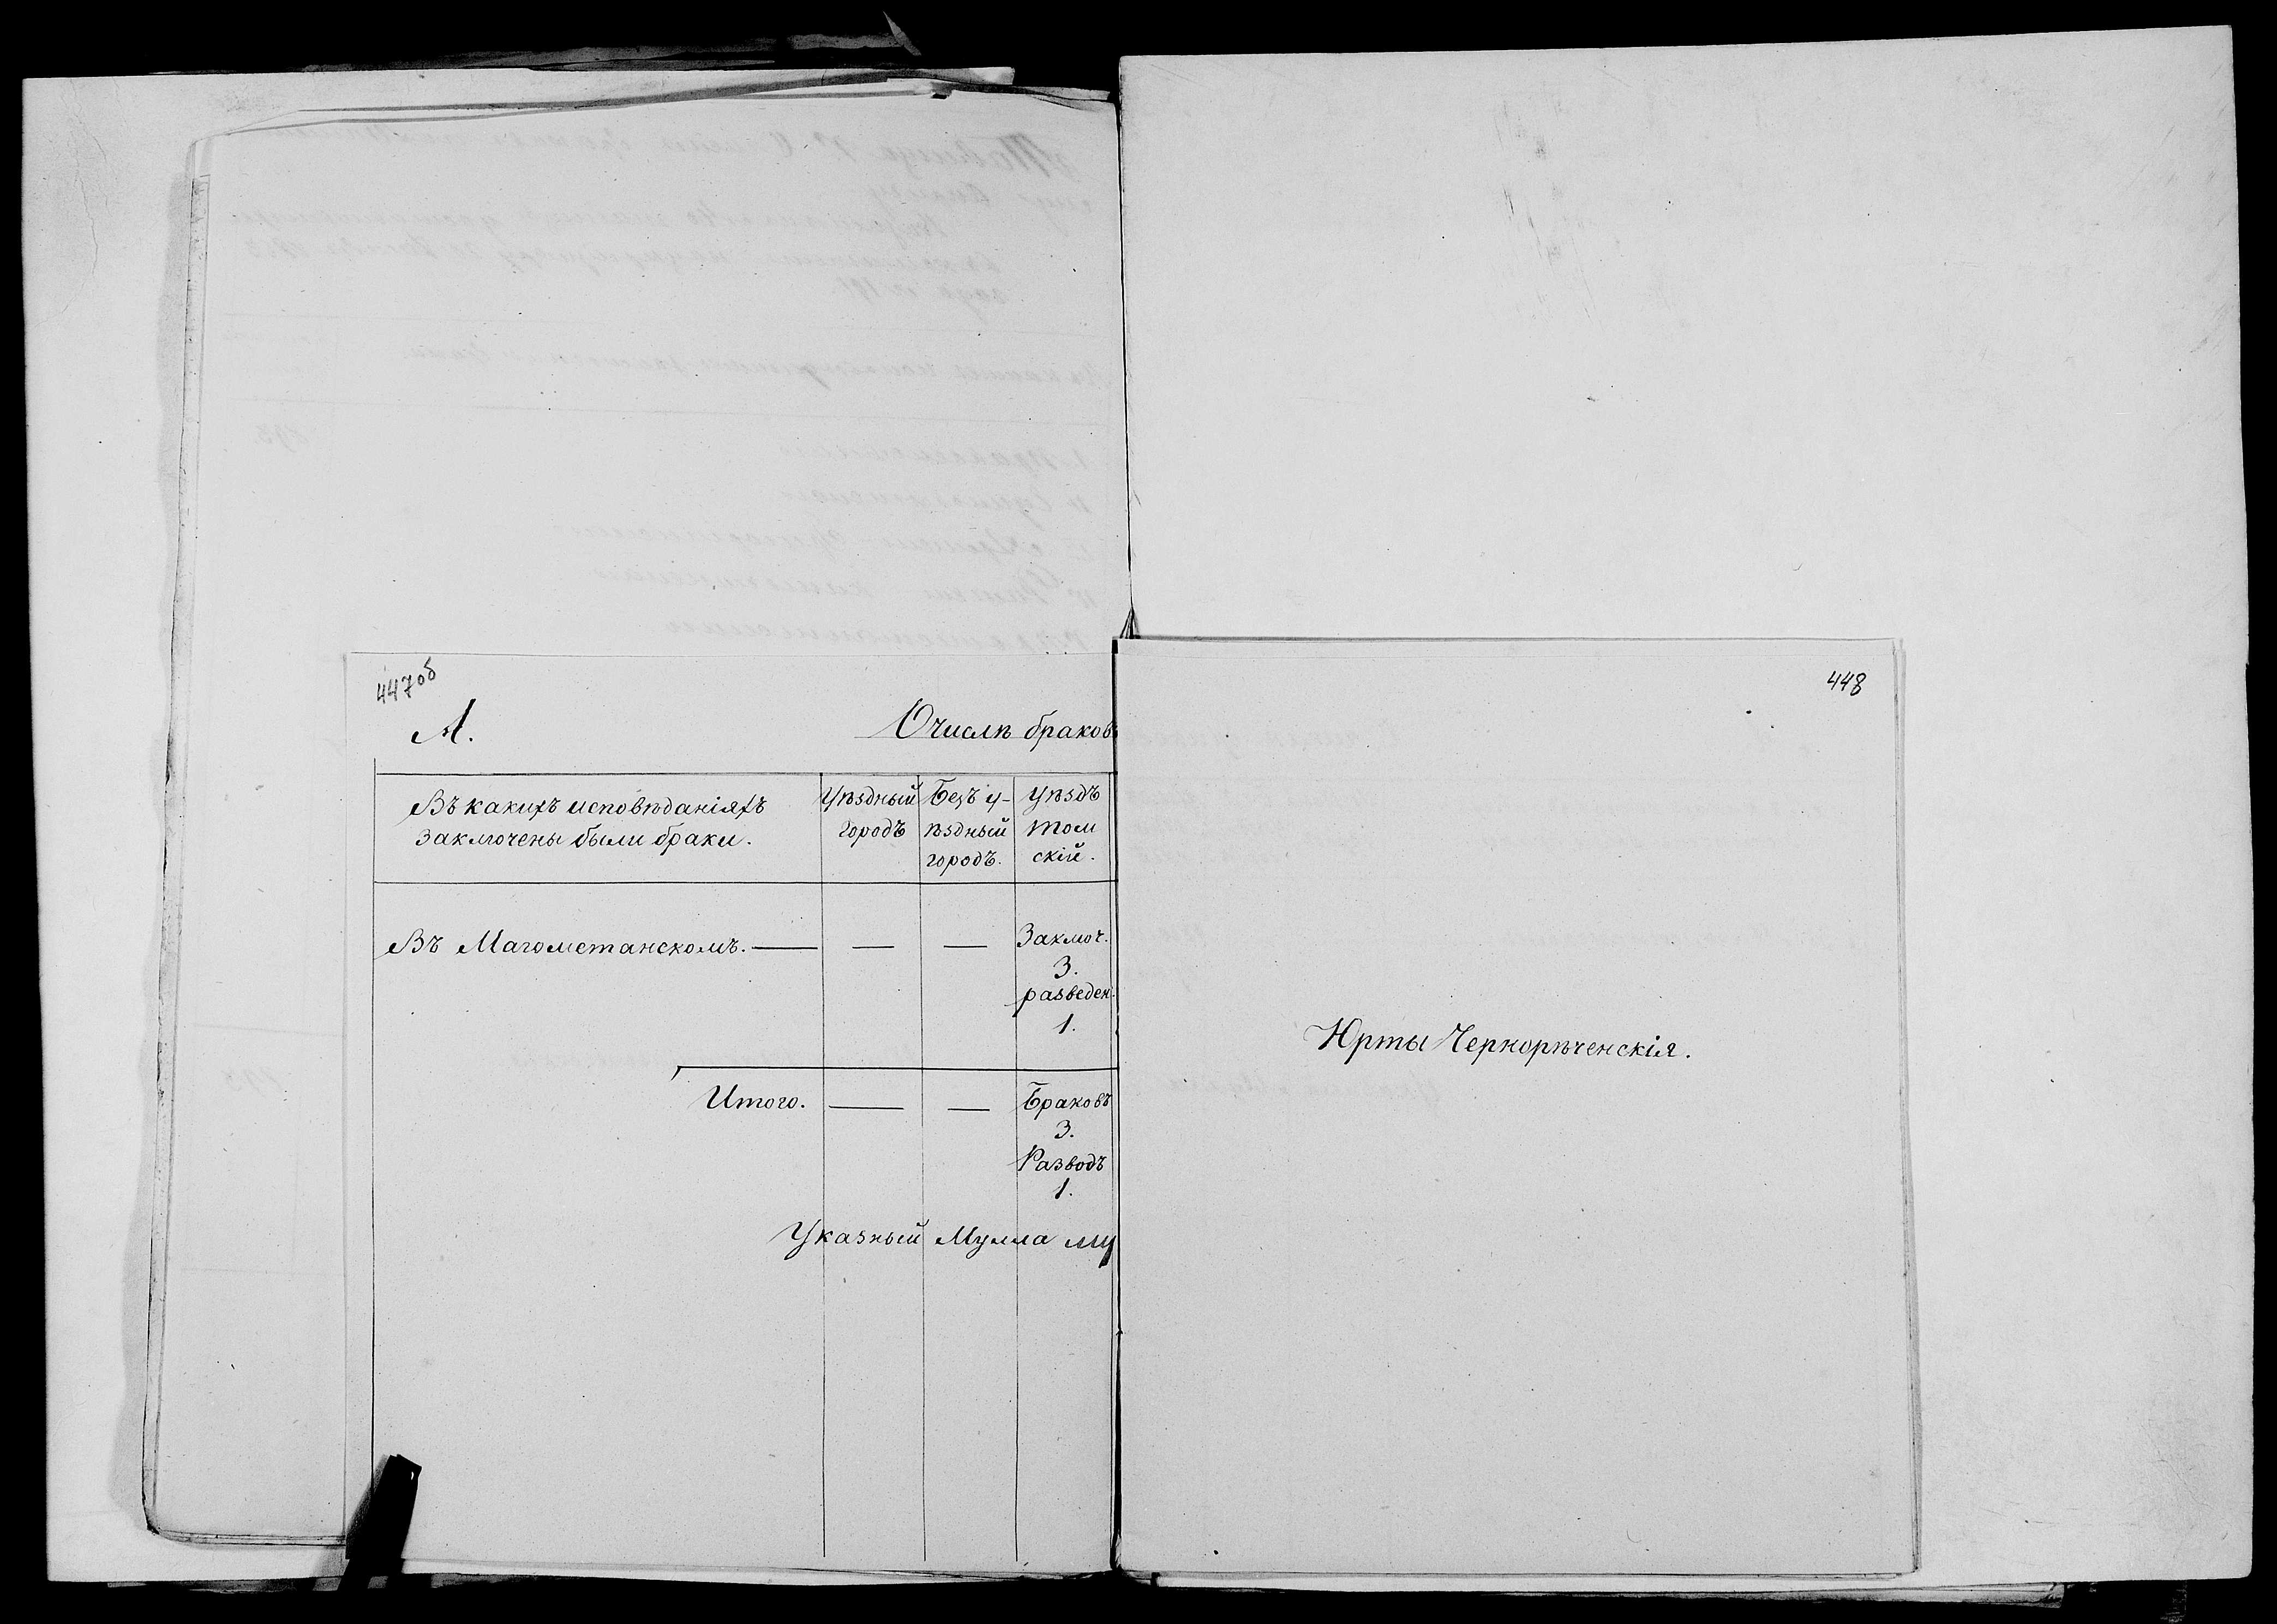 447об
А.
О числѣ браковъ
Въ какихъ исповѣданіяхъ
заключены были браки.
Уѣздный
городъ
Безъ у-
ѣздный
городъ.
Уѣздъ
Том
скій.
Въ Магометанскомъ. — — —
Заключ.
3.
разведен.
1.
Итого. — —
Браковъ
3.
Разводъ
1.
Указный Мулла Му
448
Юрты Чернорѣченскія.